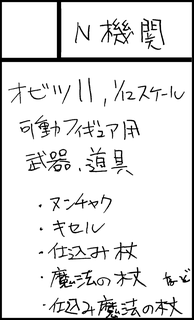 N機関
オビツ11, 1/12スケール
可動フィギュア用
武器、道具
・ヌンチャク
・キセル
・仕込み杖
・魔法の杖 など
・仕込み魔法の杖